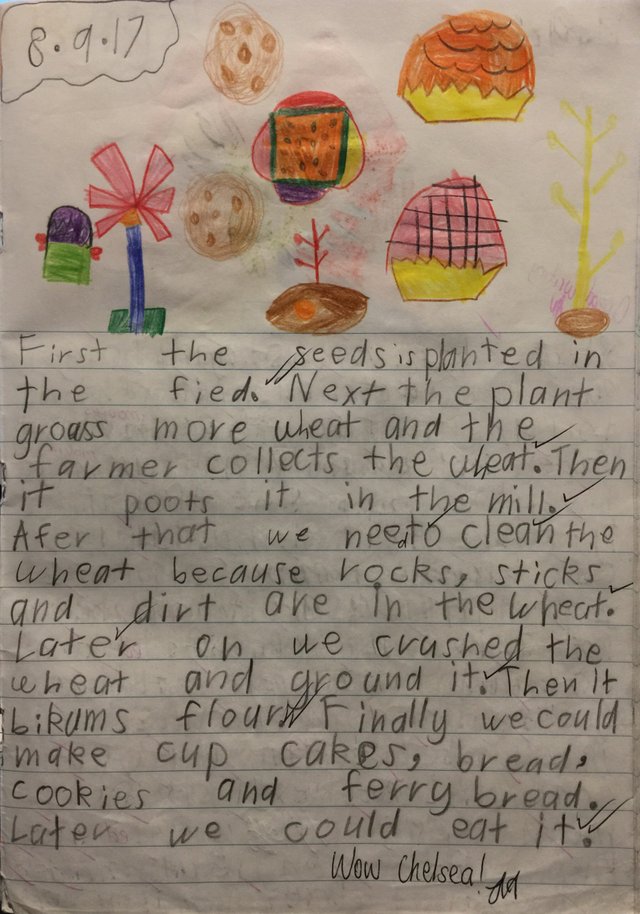 8.9.17
First the seeds is planted in
the fied. Next the plant
groass more wheat and the
farmer collects the wheat. Then
it poots it in the mill.
Afer that we need to clean the
wheat because rocks, sticks
and dirt are in the wheat.
Later on we crushed the
wheat and ground it. Then it
bikums flour. Finally we could
make cup cakes, bread,
cookies and ferry bread.
Later we could eat it.
Wow Chelsea!